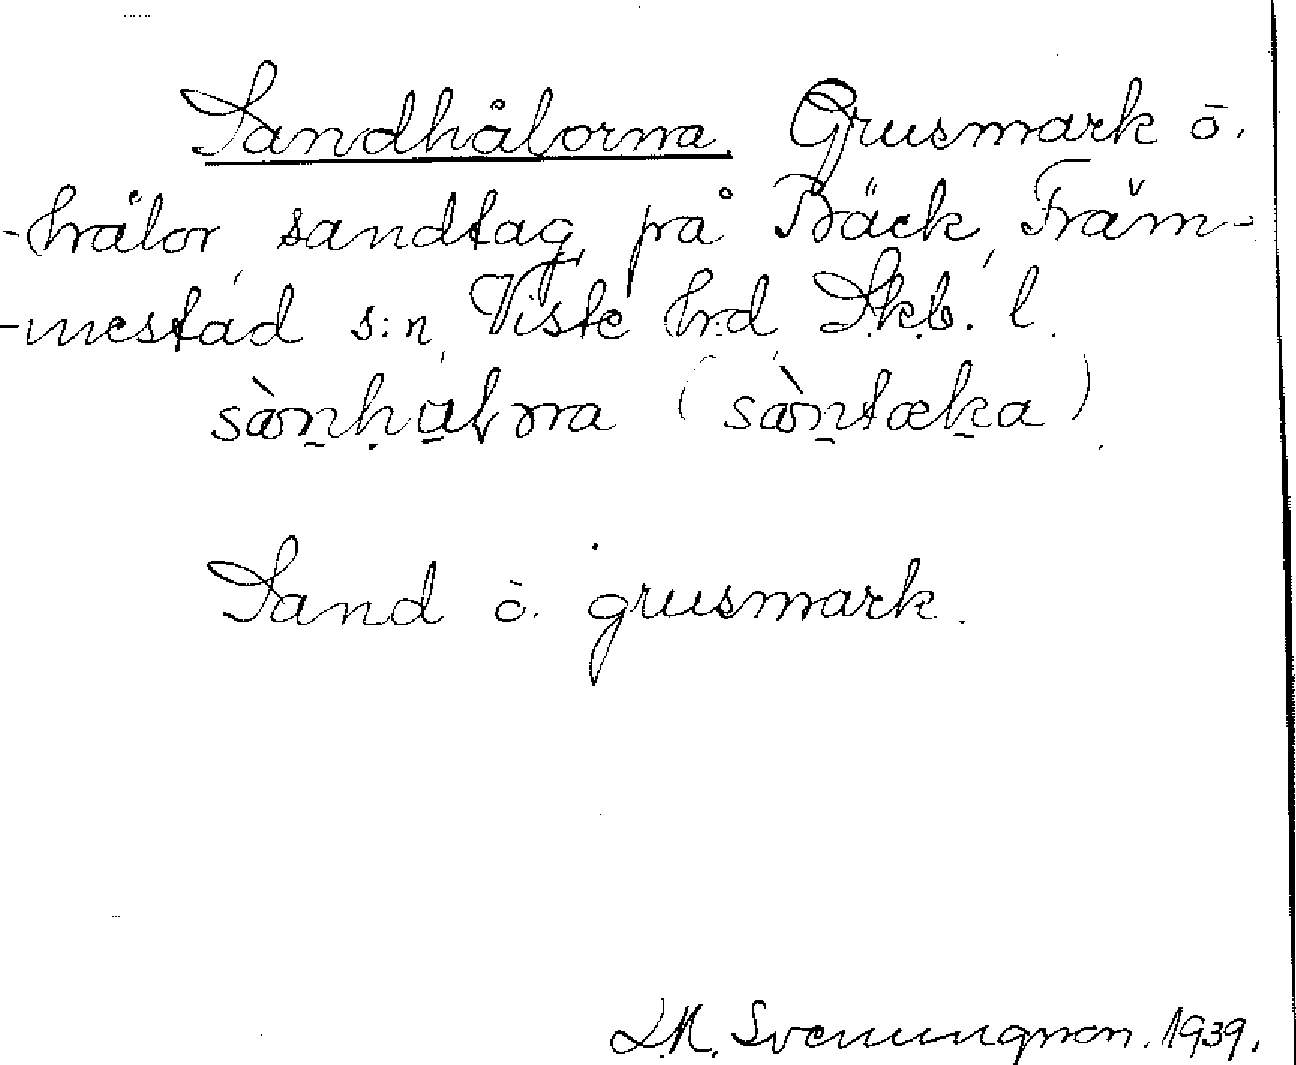 Sandhålorna. Grusmark ō.
-hålor, sandtag, på Bäck, Främ-
-mestad s:n, Viste hrd, Skb. l.
sànhålna (sàntæka).
Sand ō. grusmark.
D.A. Svenungson. 1939.